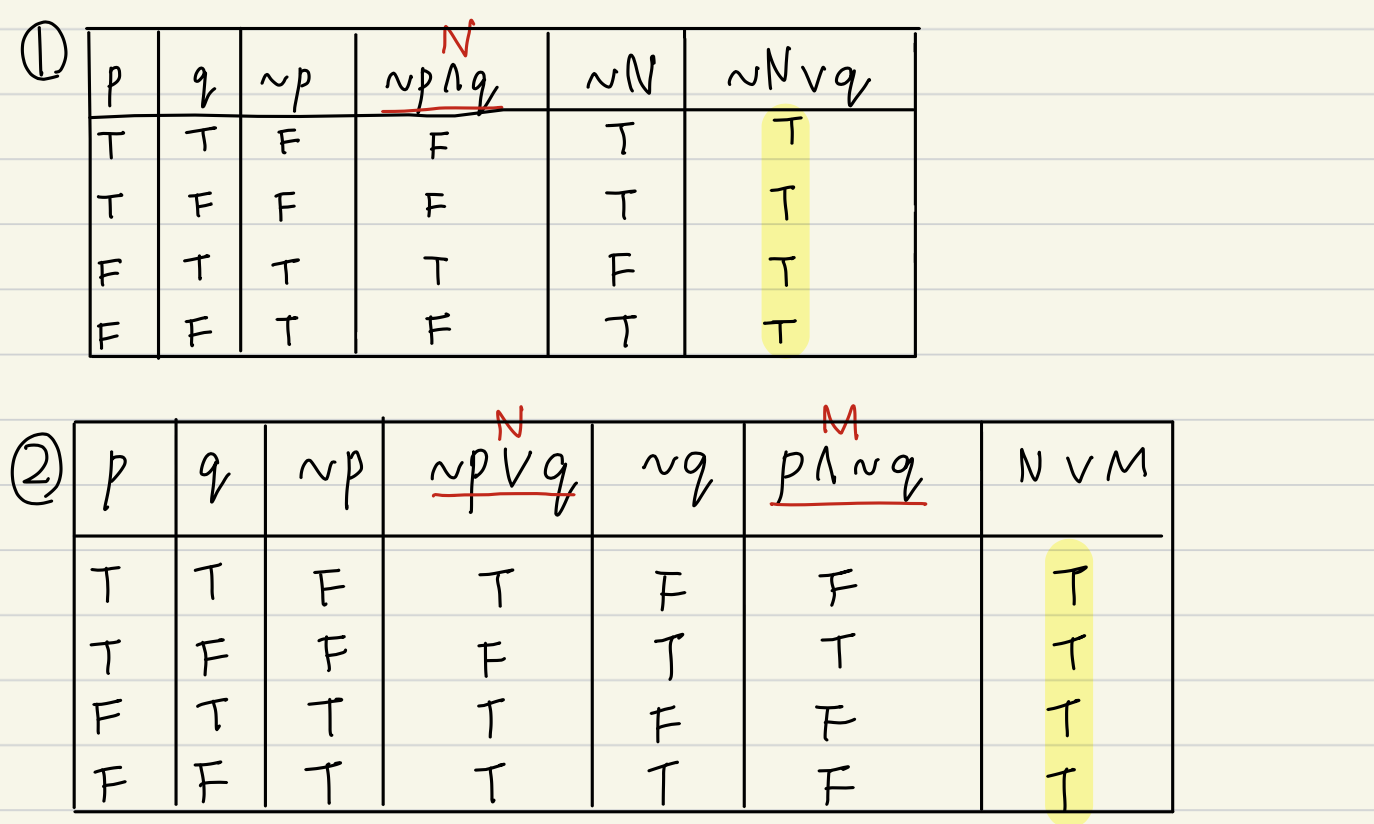 ①
N
p q ~p ~p∧q ~N ~N∨q
T T F F T T
T F F F T T
F T T T F T
F F T F T T
② N M
p q ~p ~p∨q ~q p∧~q N∨M
T T F T F F T
T F F F T T T
F T T T F F T
F F T T T F T